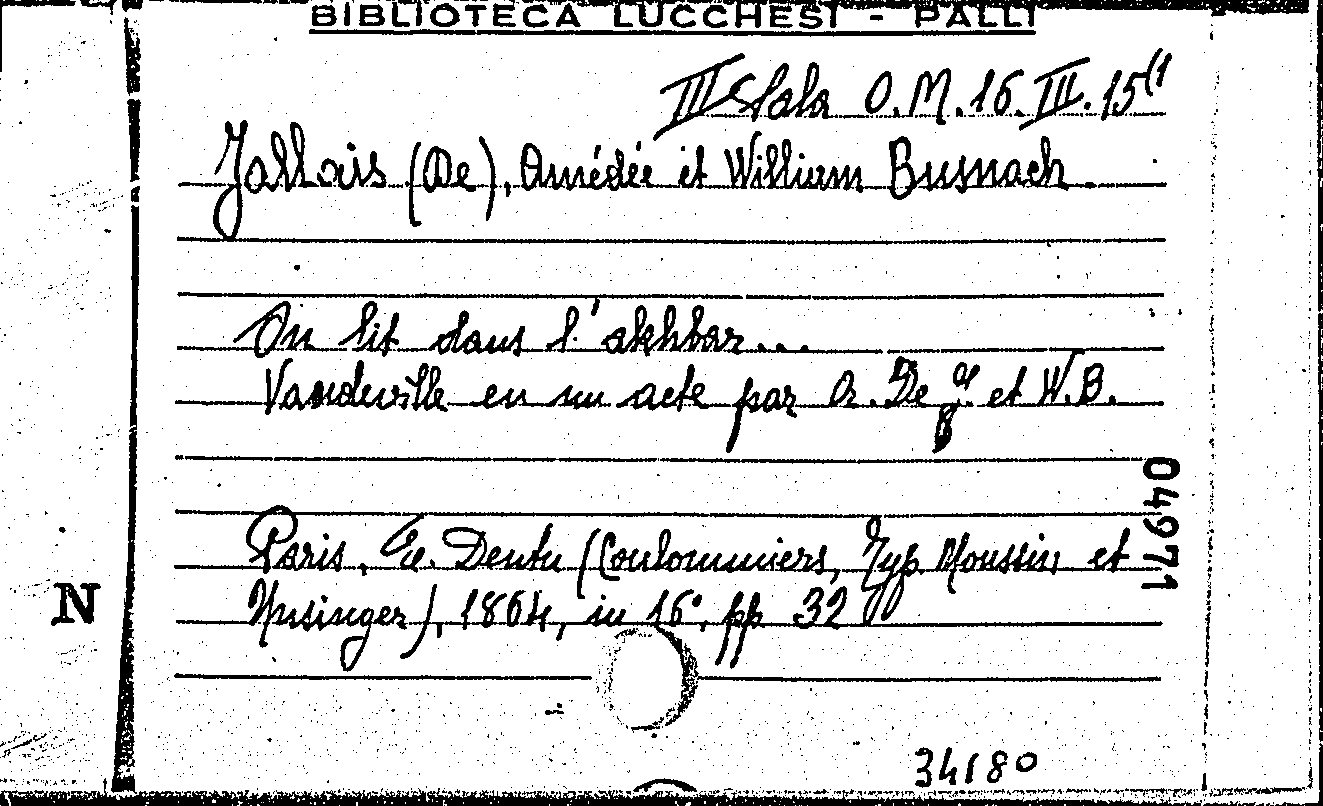 BIBLIOTECA LUCCHESI - PALLI
III Sala O.M.16.III.15(1
Jallais (De), Amédée et William Busnach.
On lit dans l'akhbar...
Vaudeville en un acte par A. De J. et W.B.
04971
Paris, E. Dentu (Coulommiers, Typ. Moussin et
Unsinger), 1864, in 16°. pp. 32
N
34180